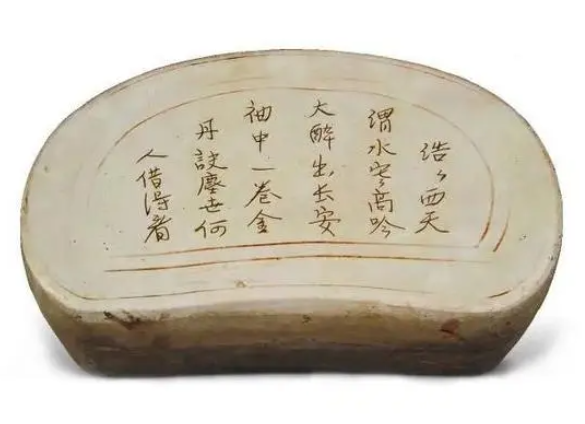 浩〻西天
渭水寒高吟
大醉出长安
袖中一卷金
丹訣塵世何
人借得看